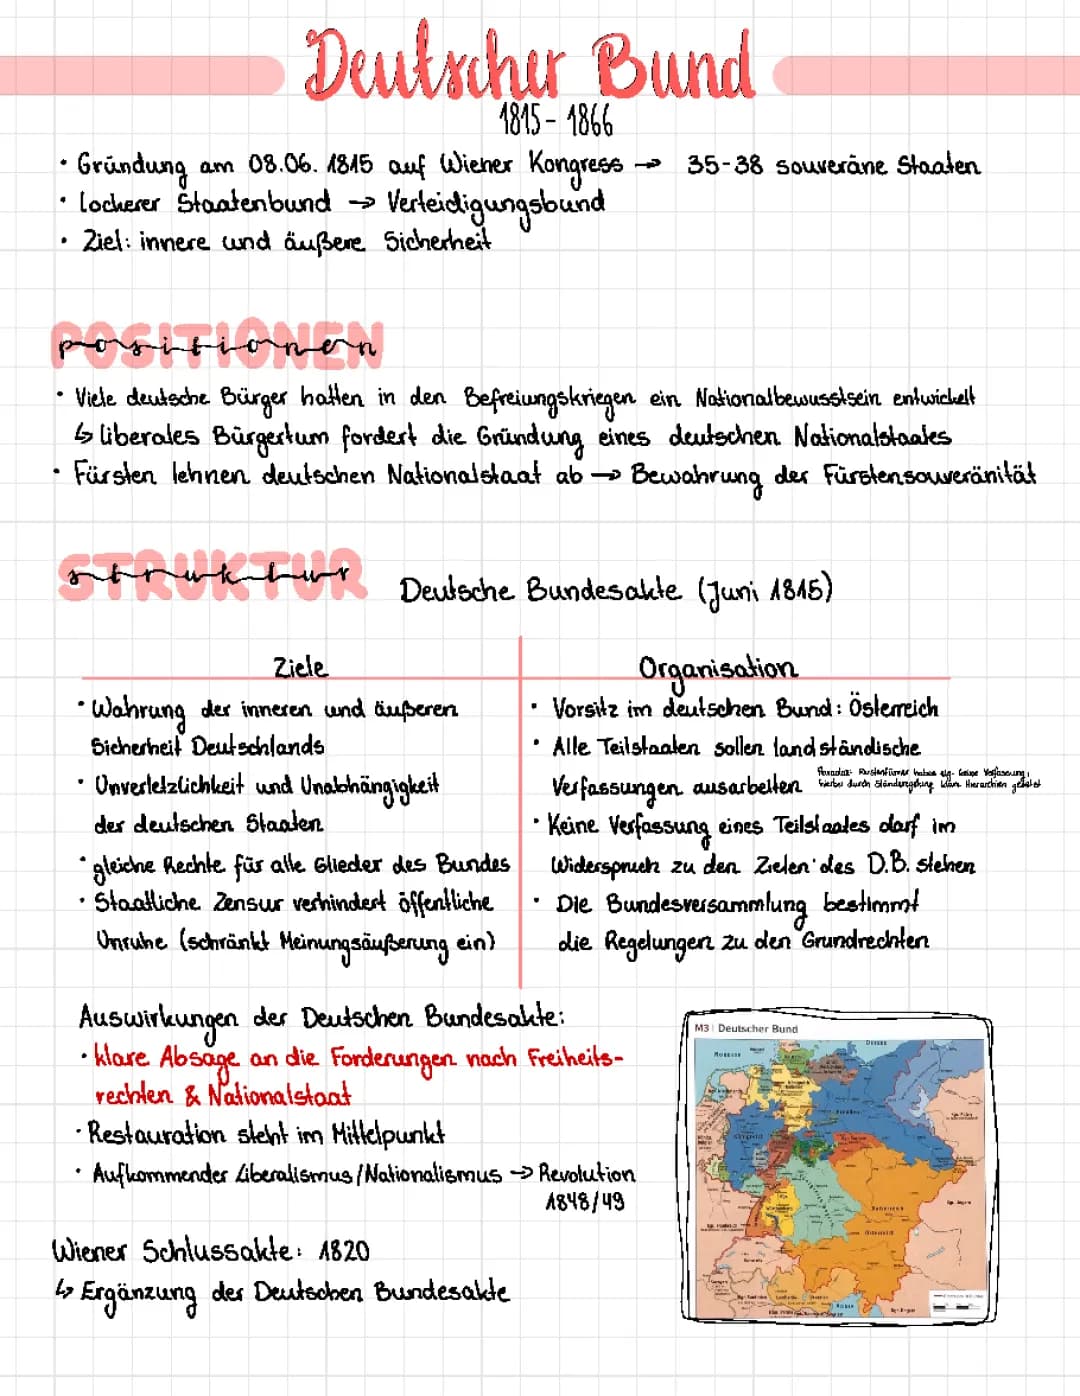 Deutscher Bund
1815 - 1866
• Gründung am 08.06. 1815 auf Wiener Kongress → 35-38 souveräne Staaten
• lockerer Staatenbund → Verteidigungsbund
• Ziel: innere und äußere Sicherheit
POSITIONEN
positionen
• Viele deutsche Bürger hatten in den Befreiungskriegen ein Nationalbewusstsein entwickelt
↳ liberales Bürgertum fordert die Gründung eines deutschen Nationalstaates
• Fürsten lehnen deutschen Nationalstaat ab → Bewahrung der Fürstensouveränität
STRUKTUR
struktur
Deutsche Bundesakte (Juni 1815)
Ziele
• Wahrung der inneren und äußeren
Sicherheit Deutschlands
• Unverletzlichkeit und Unabhängigkeit
der deutschen Staaten
• gleiche Rechte für alle Glieder des Bundes
• Staatliche Zensur verhindert öffentliche
Unruhe (schränkt Meinungsäußerung ein)
Organisation
• Vorsitz im deutschen Bund: Österreich
• Alle Teilstaaten sollen landständische
Verfassungen ausarbeiten
• Keine Verfassung eines Teilstaates darf im
Widerspruch zu den Zielen des D.B. stehen
• Die Bundesversammlung bestimmt
die Regelungen zu den Grundrechten
Auswirkungen der Deutschen Bundesakte:
• klare Absage an die Forderungen nach Freiheits-
rechten & Nationalstaat
• Restauration steht im Mittelpunkt
• Aufkommender Liberalismus/Nationalismus → Revolution
1848/49
Wiener Schlussakte: 1820
↳ Ergänzung der Deutschen Bundesakte
M3 | Deutscher Bund